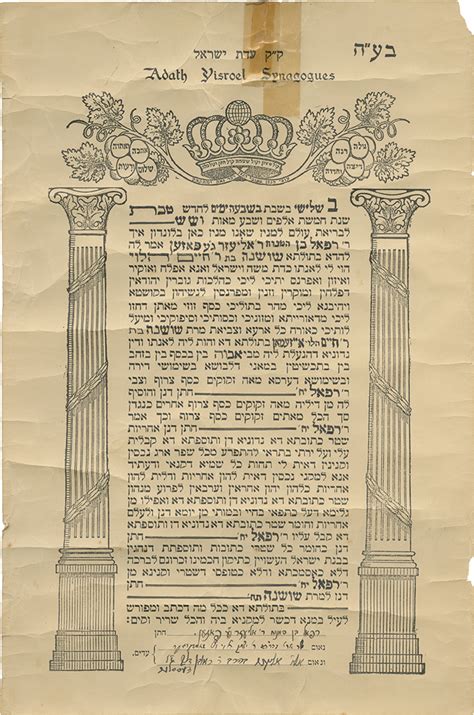 בע״ה
ק״ק עדת ישראל
Adath Yisroel Synagogues
גילה רנה
דיצה
וחדוה
אהבה ואחוה
שלום
ורעות
קול ששון וקול שמחה קול חתן וקול כלה
בשלישי בשבת בשבעה ימים לחדש טבת
שנת חמשת אלפים ושבע מאות ושש
לבריאת עולם למנין שאנו מנין כאן בלונדון איך
ר׳ רפאל בן המנוח ר׳ אליעזר אמר לה
להדא בתולתא שושנה בת ר׳ חיים הלוי
הוי לי לאנתו כדת משה וישראל ואנא אפלח ואוקיר
ואיזון ואפרנס יתיכי ליכי כהלכות גוברין יהודאין
דפלחין ומוקרין וזנין ומפרנסין לנשיהון בקושטא
ויהיבנא ליכי מהר בתוליכי כסף זוזי מאתן דחזו
ליכי מדאורייתא ומזוניכי וכסותיכי וסיפוקיכי ומיעל
לותיכי כאורח כל ארעא וצביאת מרת שושנה בת
ר׳ חיים הלוי בתולתא דא והות ליה לאנתו ודין
נדוניא דהנעלת ליה מבי אבוה בין בכסף בין בזהב
בין בתכשיטין במאני דלבושא בשימושי דירה
ובשימושא דערסא מאה זקוקים כסף צרוף וצבי
ר׳ רפאל יח׳ חתן דנן והוסיף
לה מן דיליה מאה זקוקים כסף צרוף אחרים כנגדן
סך הכל מאתים זקוקים כסף צרוף וכך אמר
ר׳ רפאל יח׳ חתן דנן אחריות
שטר כתובתא דא נדוניא דן ותוספתא דא קבלית
עלי ועל ירתי בתראי להתפרע מכל שפר ארג נכסין
וקנינין דאית לי תחות כל שמיא דקנאי ודעתיד
אנא למקני נכסין דאית להון אחריות ודלית להון
אחריות כלהון יהון אחראין וערבאין לפרוע מנהון
שטר כתובתא דא נדוניא דן ותוספתא דא ואפילו מן
גלימא דעל כתפאי בחיי ובמותי מן יומא דנן ולעלם
אחריות וחומר שטר כתובתא דא נדוניא דן ותוספתא
דא קבל עליו ר׳ רפאל יח׳ חתן
דנן בחומר כל שטרי כתובות ותוספתות דנהגין
בבנת ישראל העשויין כתיקון חכמינו זכרונם לברכה
דלא כאסמכתא ודלא כטופסי דשטרי וקנינא מן
ר׳ רפאל בן המנוח ר׳ אליעזר חתן
דנן למרת שושנה תח׳
בתולתא דא בכל מה דכתב ומפורש
לעיל במנא דכשר למקניא ביה והכל שריר וקים:
ונאום
ונאום
עדים.